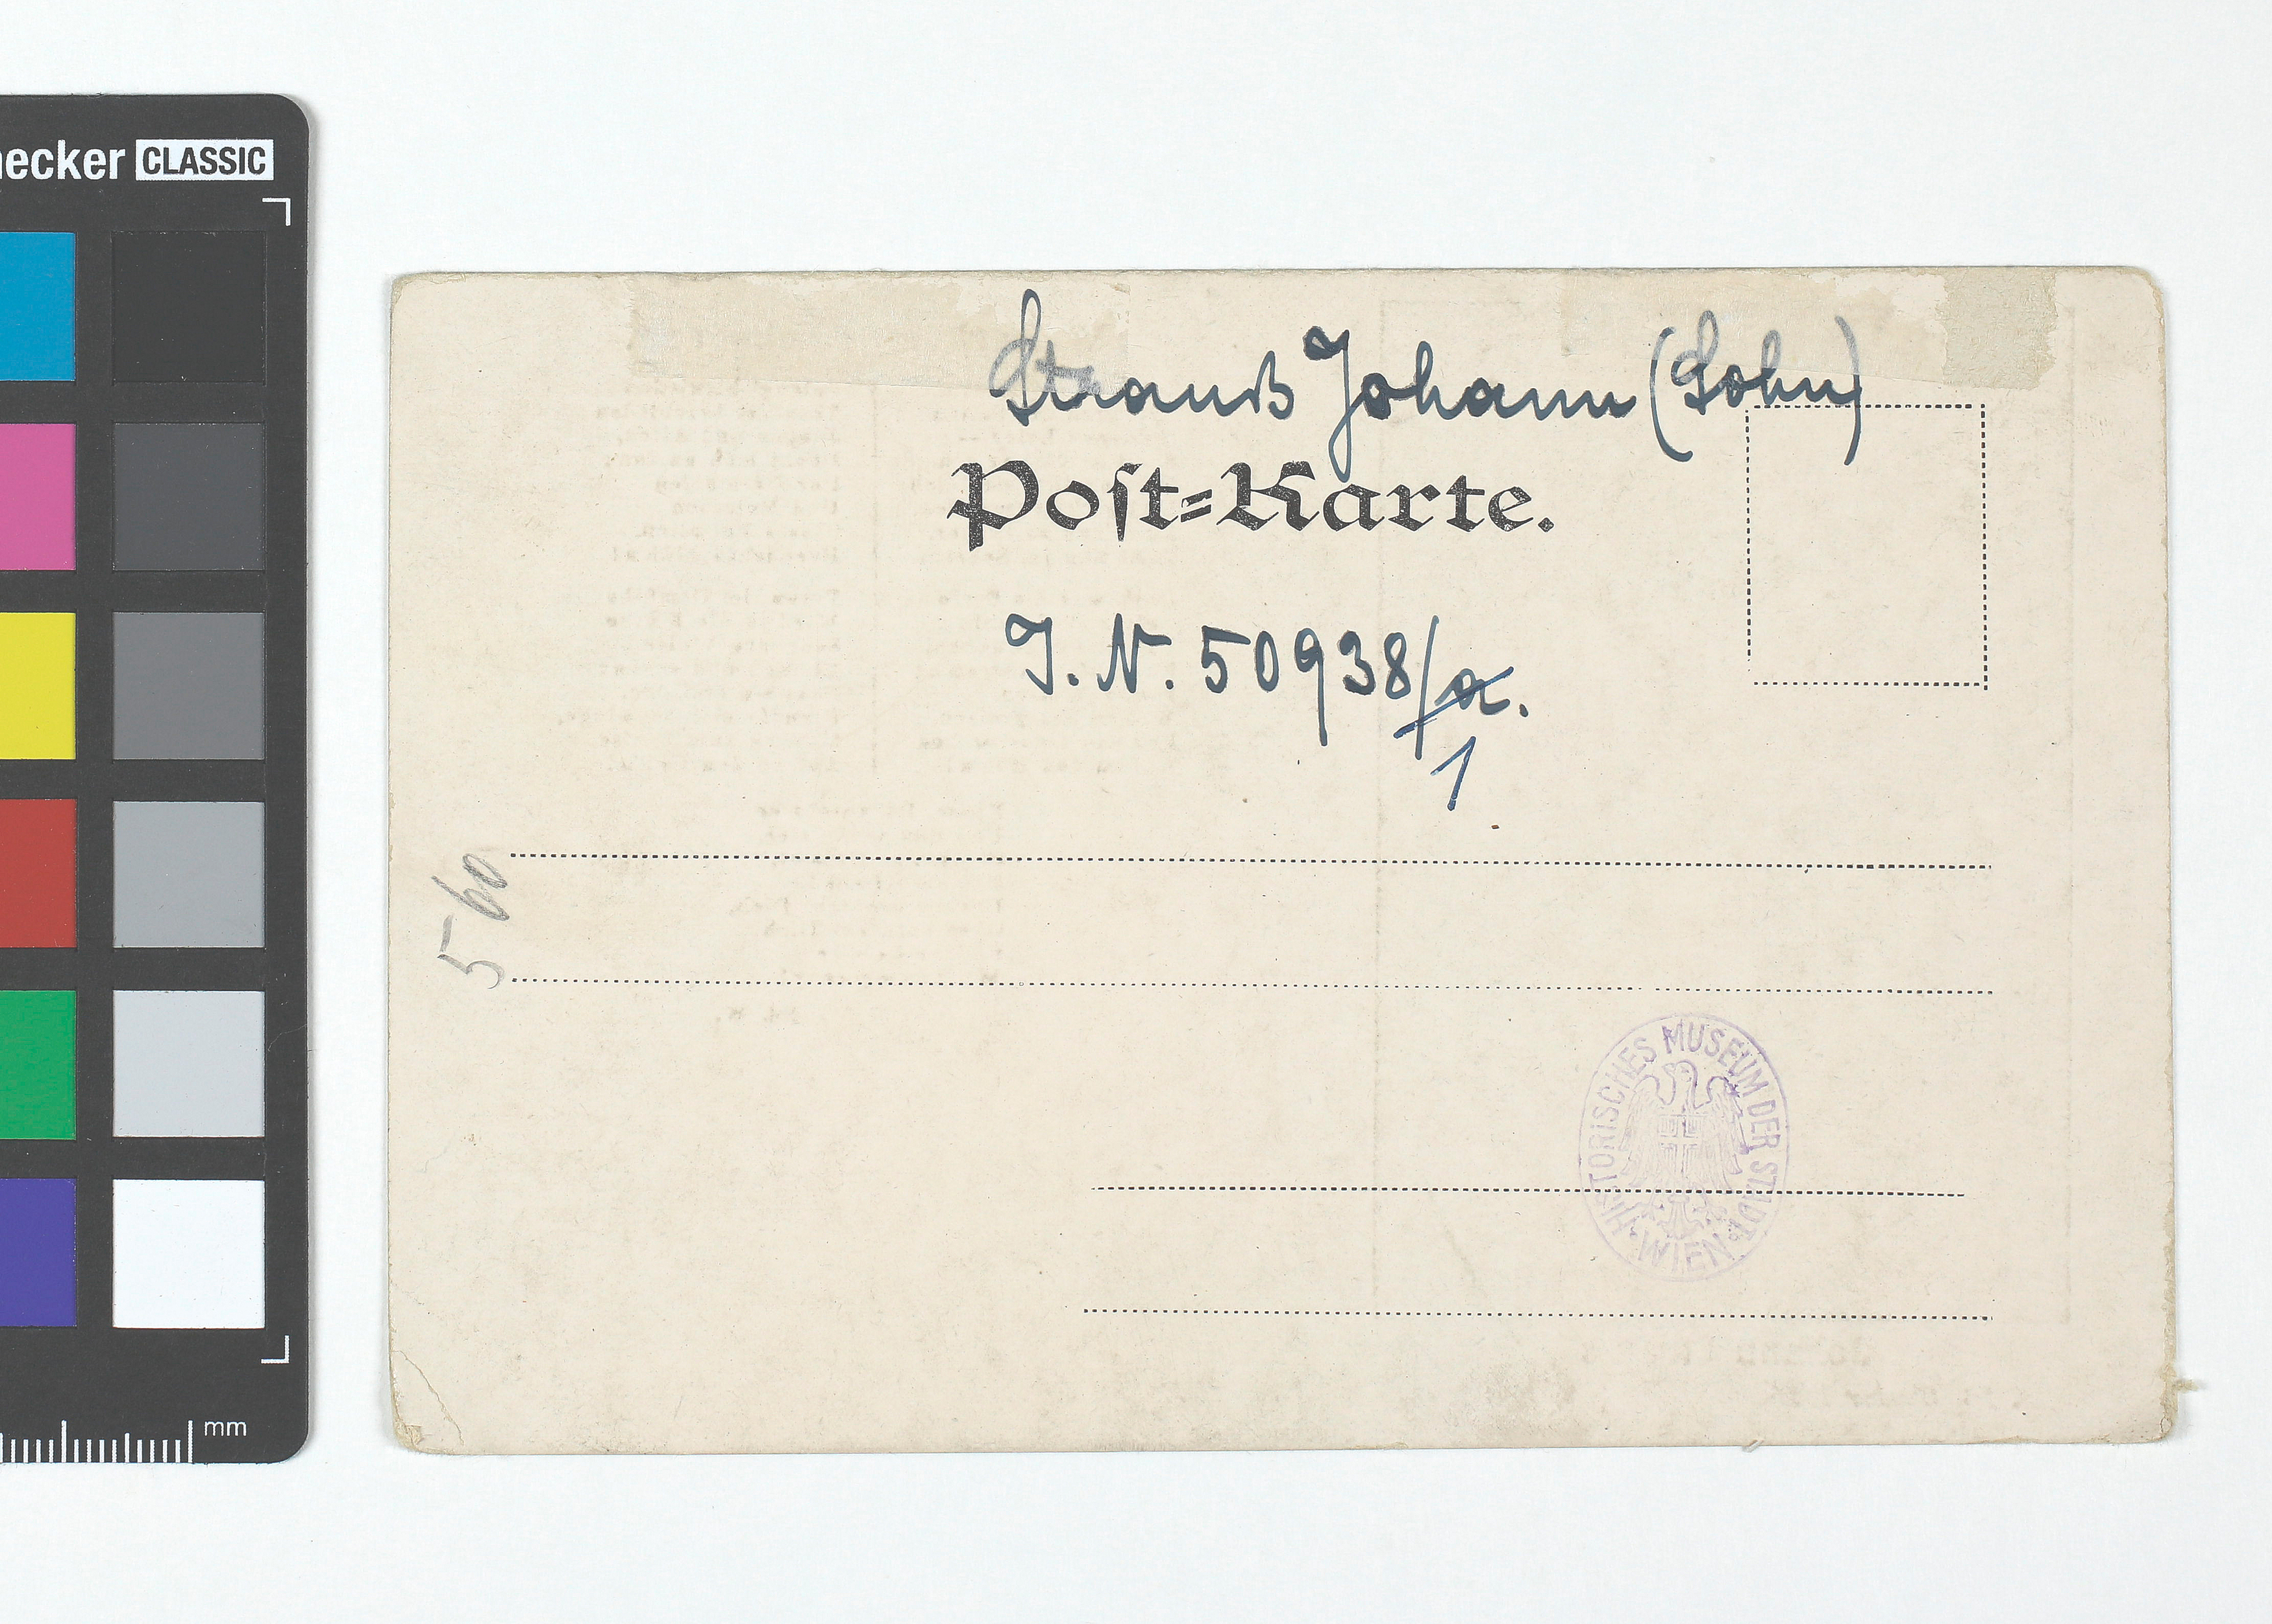 ecker CLASSIC
Strauß Johann (Sohn)
Post=Karte.
J. N. 50938/a.
1
560
HISTORISCHES MUSEUM DER STADT
WIEN
mm